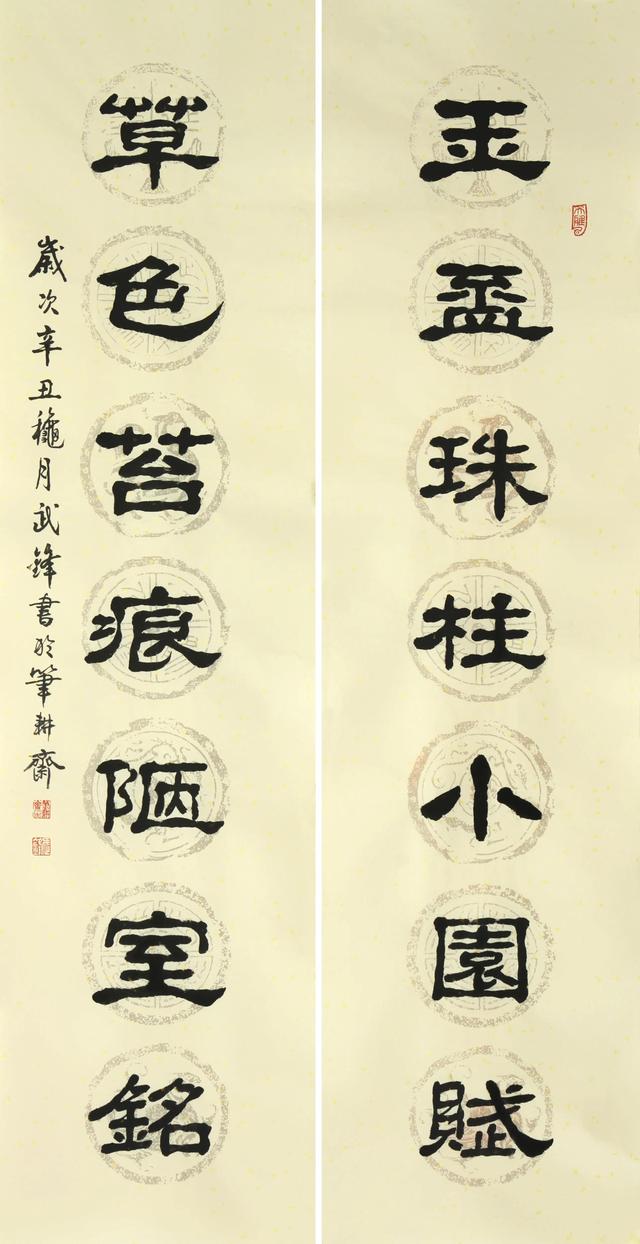 玉盃珠柱小園賦
草色苔痕陋室銘
歲次辛丑穐月武鋒書於筆耕齋